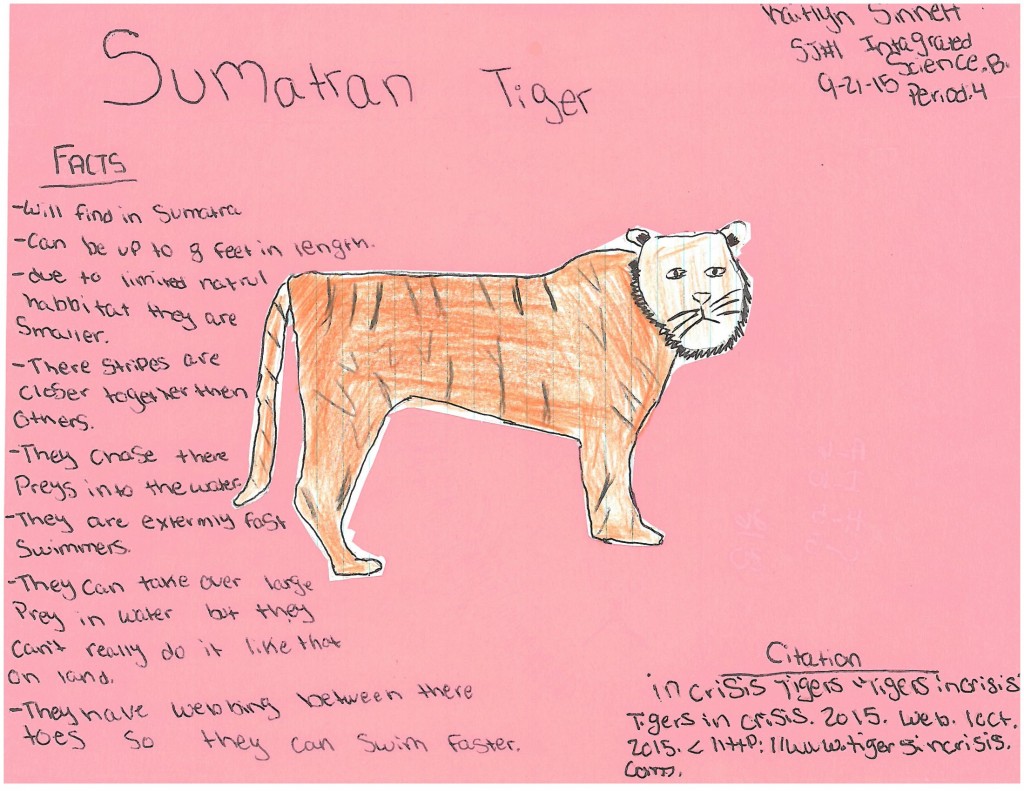 Sumatran Tiger
Kaitlyn Sinnett
SJ#1 Intagrated
Science.B.
9-21-15 Period.4
FACTS
-Will find in Sumatra
-Can be up to 8 feet in length.
-due to limited natrul
habbitat they are
Smaller.
-There Stripes are
closer together then
Others.
-They chase there
Preys into the water.
-They are extermly fast
Swimmers.
-They can take over large
Prey in water but they
can't really do it like that
on land.
-They have webbing between there
toes so they can swim faster.
Citation
in crisis Tigers "Tigers incrisis"
Tigers in crisis. 2015. Web. 1oct.
2015. < http://www.tigersincrisis.
com.